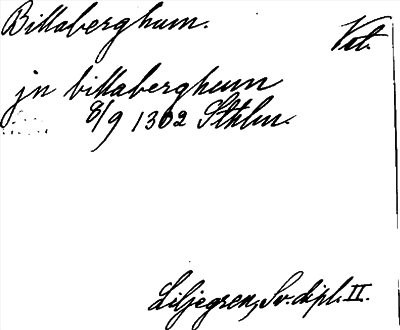 Billaberghum.
Vet.
jn billaberghum
8/9 1302 Sthlm.
Liljegren, Sv. dipl. II.